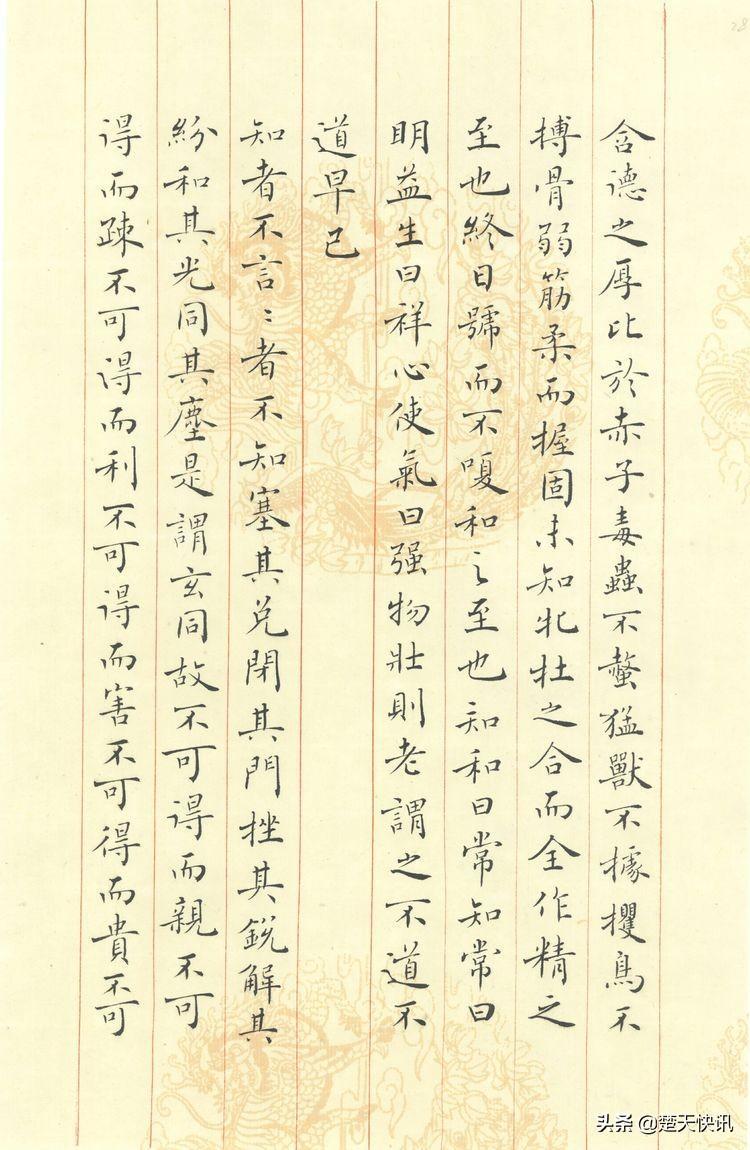 含德之厚比於赤子毒蟲不螫猛獸不據攫鳥不
搏骨弱筋柔而握固未知牝牡之合而全作精之
至也終日號而不嗄和之至也知和曰常知常曰
明益生曰祥心使氣曰强物壯則老謂之不道不
道早已
知者不言〻者不知塞其兌閉其門挫其銳解其
紛和其光同其塵是謂玄同故不可得而親不可
得而踈不可得而利不可得而害不可得而貴不可
28
头条 @楚天快讯